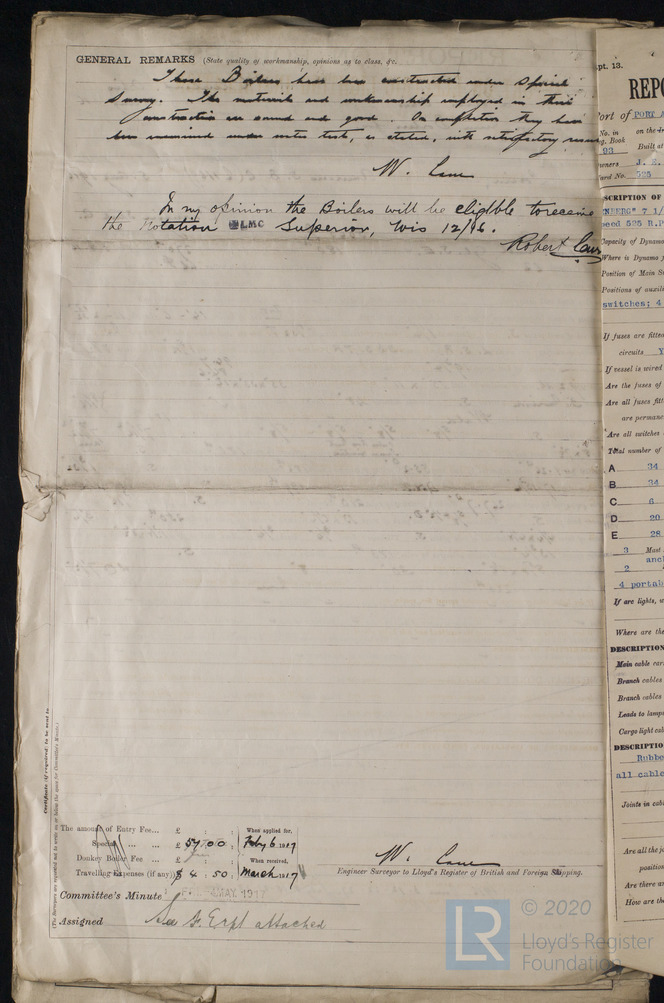 GENERAL REMARKS (State quality of workmanship, opinions as to class, &c.
These Boilers have been constructed under Special
Survey. The materials and workmanship employed in their
construction are sound and good. On completion they have
been examined under water test, as stated, with satisfactory
W.
In my opinion the Boilers will be eligible to receive
the Notation LMC Superior, Wis 12/16.
Robert
Certificate (if required) to be sent to
The amount of Entry Fee... £ : :
Special ... ... £ 54.00 :
Donkey Boiler Fee ... £ : :
Travelling Expenses (if any) $ 4 : 50 :
When applied for,
Feby 6 1917
When received,
March 1917
W.
Engineer Surveyor to Lloyd's Register of British and Foreign Shipping.
Committee's Minute
MAY. 1917
Assigned See attached
pt. 13.
REPO
ort of PORT A
No. in
g. Book
23
on the
Built at
wners J. E.
ard No. 525
SCRIPTION OF
NBERG" 7 1/
peed 525 R.P
Capacity of Dynamo
Where is Dynamo
Position of Main S
Positions of auxil
switches; 4
If fuses are fitte
circuits Y
If vessel is wired
Are the fuses of
Are all fuses fitt
are perman
Are all switches
Total number of
A 34
B 34
C 6
D 20
E 28
3 Mast
anc
2
4 portab
If arc lights, w
Where are the
DESCRIPTION
Main cable car
Branch cables
Branch cables
Leads to lamps
Cargo light cab
DESCRIPTIO
Rubbe
all cable
Joints in cab
Are all the jo
position
Are there an
How are the
© 2020
LR
Lloyd's Register
Foundation